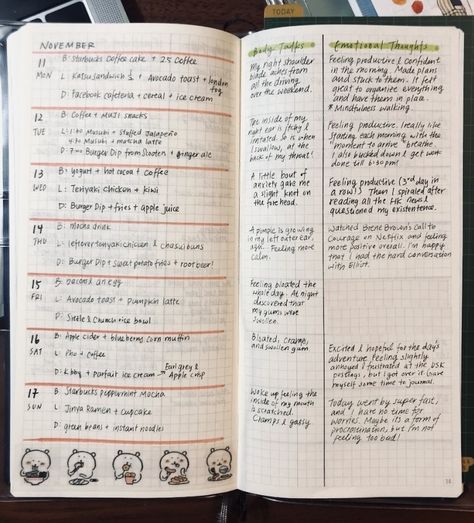 TODAY
NOVEMBER
11
MON
B: Starbucks Coffee cake + 25 Coffee
L: Katsu Sandwich ½ + Avocado toast + london fog
D: Facebook cafeteria + cereal + ice cream
12
TUE
B: Coffee + MUJI snacks
L: Musubi + stuffed Jalapeño
½ Musubi + matcha latte
D: Two Burger Dip from Sooten + ginger ale
13
WED
B: Yogurt + hot cocoa + Coffee
L: Teriyaki chicken + kiwi
D: Burger Dip + fries + apple juice
14
THU
B: mocha drink
L: leftover tonkatsu chicken & chasiu buns
D: Burger Dip + sweet potato fries + root beer!
15
FRI
B: Bacon & an egg
L: Avocado toast + Pumpkin latte
D: Sizzle & Crunch rice bowl
16
SAT
B: Apple cider + blueberry corn muffin
L: Pho + coffee
D: K bbq + parfait ice cream → Earl grey & Apple crisp
17
SUN
B: Starbucks peppermint mocha
L: Jinya Ramen + cupcake
D: green beans + instant noodles
Body Talks
My right shoulder
blade aches from
all the driving
over the weekend.
The inside of my
right ear is itchy &
irritated. So is when
I swallow, at the
back of my throat!
A little bout of
anxiety gave me
a slight knot on
the forehead.
A pimple is growing
in my left outer ear,
ugh. Feeling more
calm.
Feeling bloated the
whole day. At night
discovered that
my gums were
swollen.
Bloated, cramps,
and swollen gum
Woke up feeling the
inside of my mouth
is scratched.
Cramps & gassy.
Emotional Thoughts
Feeling productive & confident
in the morning. Made plans
and stuck to them. It felt
great to organize everything
and have them in place.
* Mindfulness walking.
Feeling productive. I really like
starting each morning with the
"moment to arrive" breathe.
I also buckled down & get work
done till 6:30pm!
Feeling productive (3rd day in
a row!) Then I spiraled after
reading all the HK news &
questioned my existence.
Watched Brené Brown's Call to
Courage on Netflix and feeling
more positive overall. I'm happy
that I had the hard conversation
with Elliot.
Excited & hopeful for the day's
adventure. Feeling slightly
annoyed & frustrated at the DSK
postings, but I got over it. Gave
myself some time to journal.
Today went by super fast,
and I have no time for
worries. Maybe it's a form of
procrastination, but I'm not
feeling too bad!